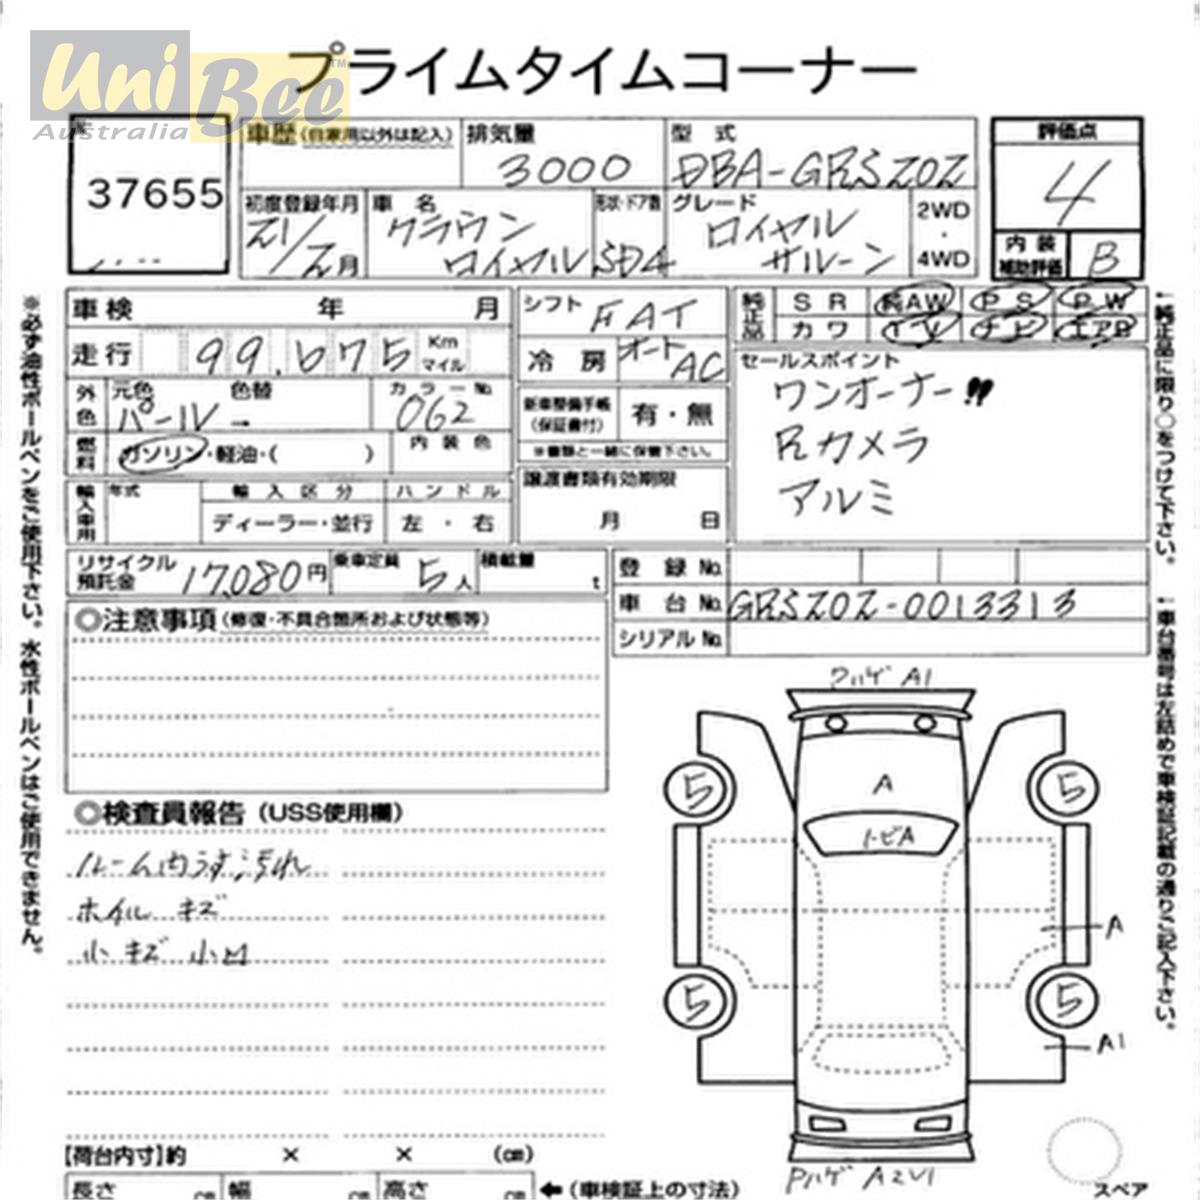 UniBee™
Australia
プライムタイムコーナー
37655
車歴(自家用以外は記入)
排気量
3000
型式
DBA-GRS202
評価点
4
初度登録年月
21/2月
車名
クラウン
ロイヤル
形状・ドア数
SD4
グレード
ロイヤル
サルーン
2WD
・
4WD
内装
補助評価
B
車検 年 月
走行 99,675 Km マイル
シフト FAT
純正品
SR 純AW PS PW
カワ TV ナビ エアB
冷房 オートAC
セールスポイント
ワンオーナー!!
Rカメラ
アルミ
外色
元色 色替
パール →
カラーNo.
062
新車整備手帳
(保証書付)
有・無
※書類と一緒に保管下さい。
燃料
ガソリン・軽油・( )
内装色
輸入車用
年式
輸入区分
ディーラー・並行
ハンドル
左・右
譲渡書類有効期限
月 日
リサイクル
預託金
17,080円
乗車定員
5人
積載量
t
登録No.
車台No. GRS202-0013313
シリアルNo.
◎注意事項(修復・不具合箇所および状態等)
◎検査員報告(USS使用欄)
ルーム内うす汚れ
ホイル キズ
小キズ 小凹
【荷台内寸】約 × × (㎝)
長さ ㎝ 幅 ㎝ 高さ ㎝ ←(車検証上の寸法)
※必ず油性ボールペンをご使用下さい。水性ボールペンはご使用できません。
←純正品に限り○をつけて下さい。
←車台番号は左詰めで車検証記載の通りご記入下さい。
ワハゲ A1
A
トビA
5
5
A
5
5
A1
Pハゲ A2 U1
スペア